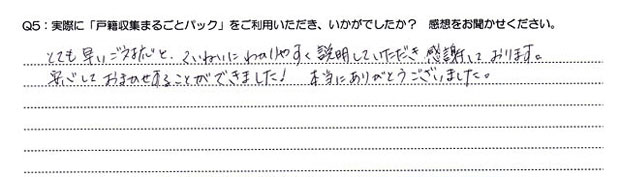 Q5：実際に「戸籍収集まるごとパック」をご利用いただき、いかがでしたか？ 感想をお聞かせください。
とても早いご対応と、ていねいにわかりやすく説明していただき感謝しております。
安心しておまかせすることができました！ 本当にありがとうございました。